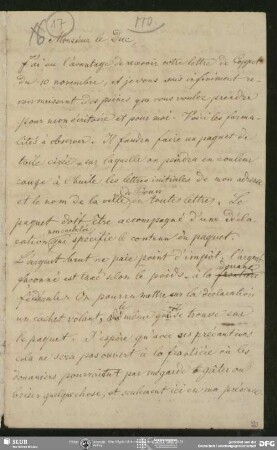 16 (17) 110.
Monsieur le Duc,
J'ai eu l'avantage de recevoir votre lettre de Coppet
du 10 novembre, et je vous suis infiniment re-
connaissant des peines que vous voulez prendre
pour mon écritoire et pour moi. Voici les forma-
lités à observer. Il faudra faire un paquet de
toile cirée sur laquelle on peindra en couleur
rouge à l'huile les lettres initiales de mon adresse
et le nom de la ville en toutes lettres. Le
paquet doit être accompagné d'une décla-
ration qui spécifie le contenu du paquet.
L'argent brut ne paie point d'impôt; l'argent
façonné est taxé selon le poids, à la
On pourra mettre sur la déclaration
un cachet volant, le même qui se trouve sur
le paquet. J'espère qu'avec ces précautions
cela ne sera pas ouvert à la frontière où les
douaniers pourraient par mégarde gâter ou
briser quelque chose, et seulement ici en ma présence
SLUB